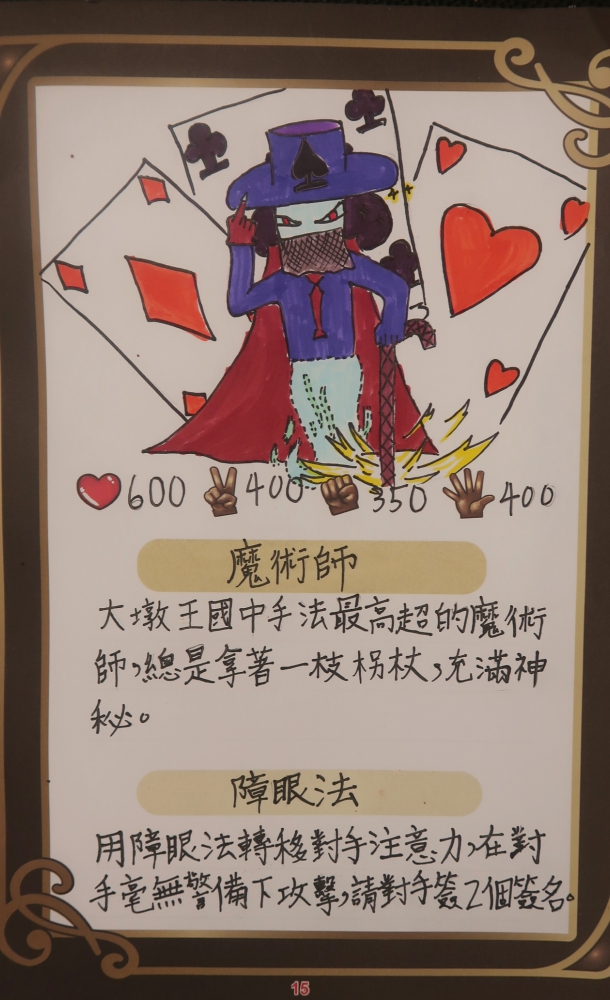 600 400 350 400
魔術師
大墩王國中手法最高超的魔術
師,總是拿著一枝柺杖,充滿神
秘。
障眼法
用障眼法轉移對手注意力,在對
手毫無警備下攻擊,請對手簽2個簽名。
15